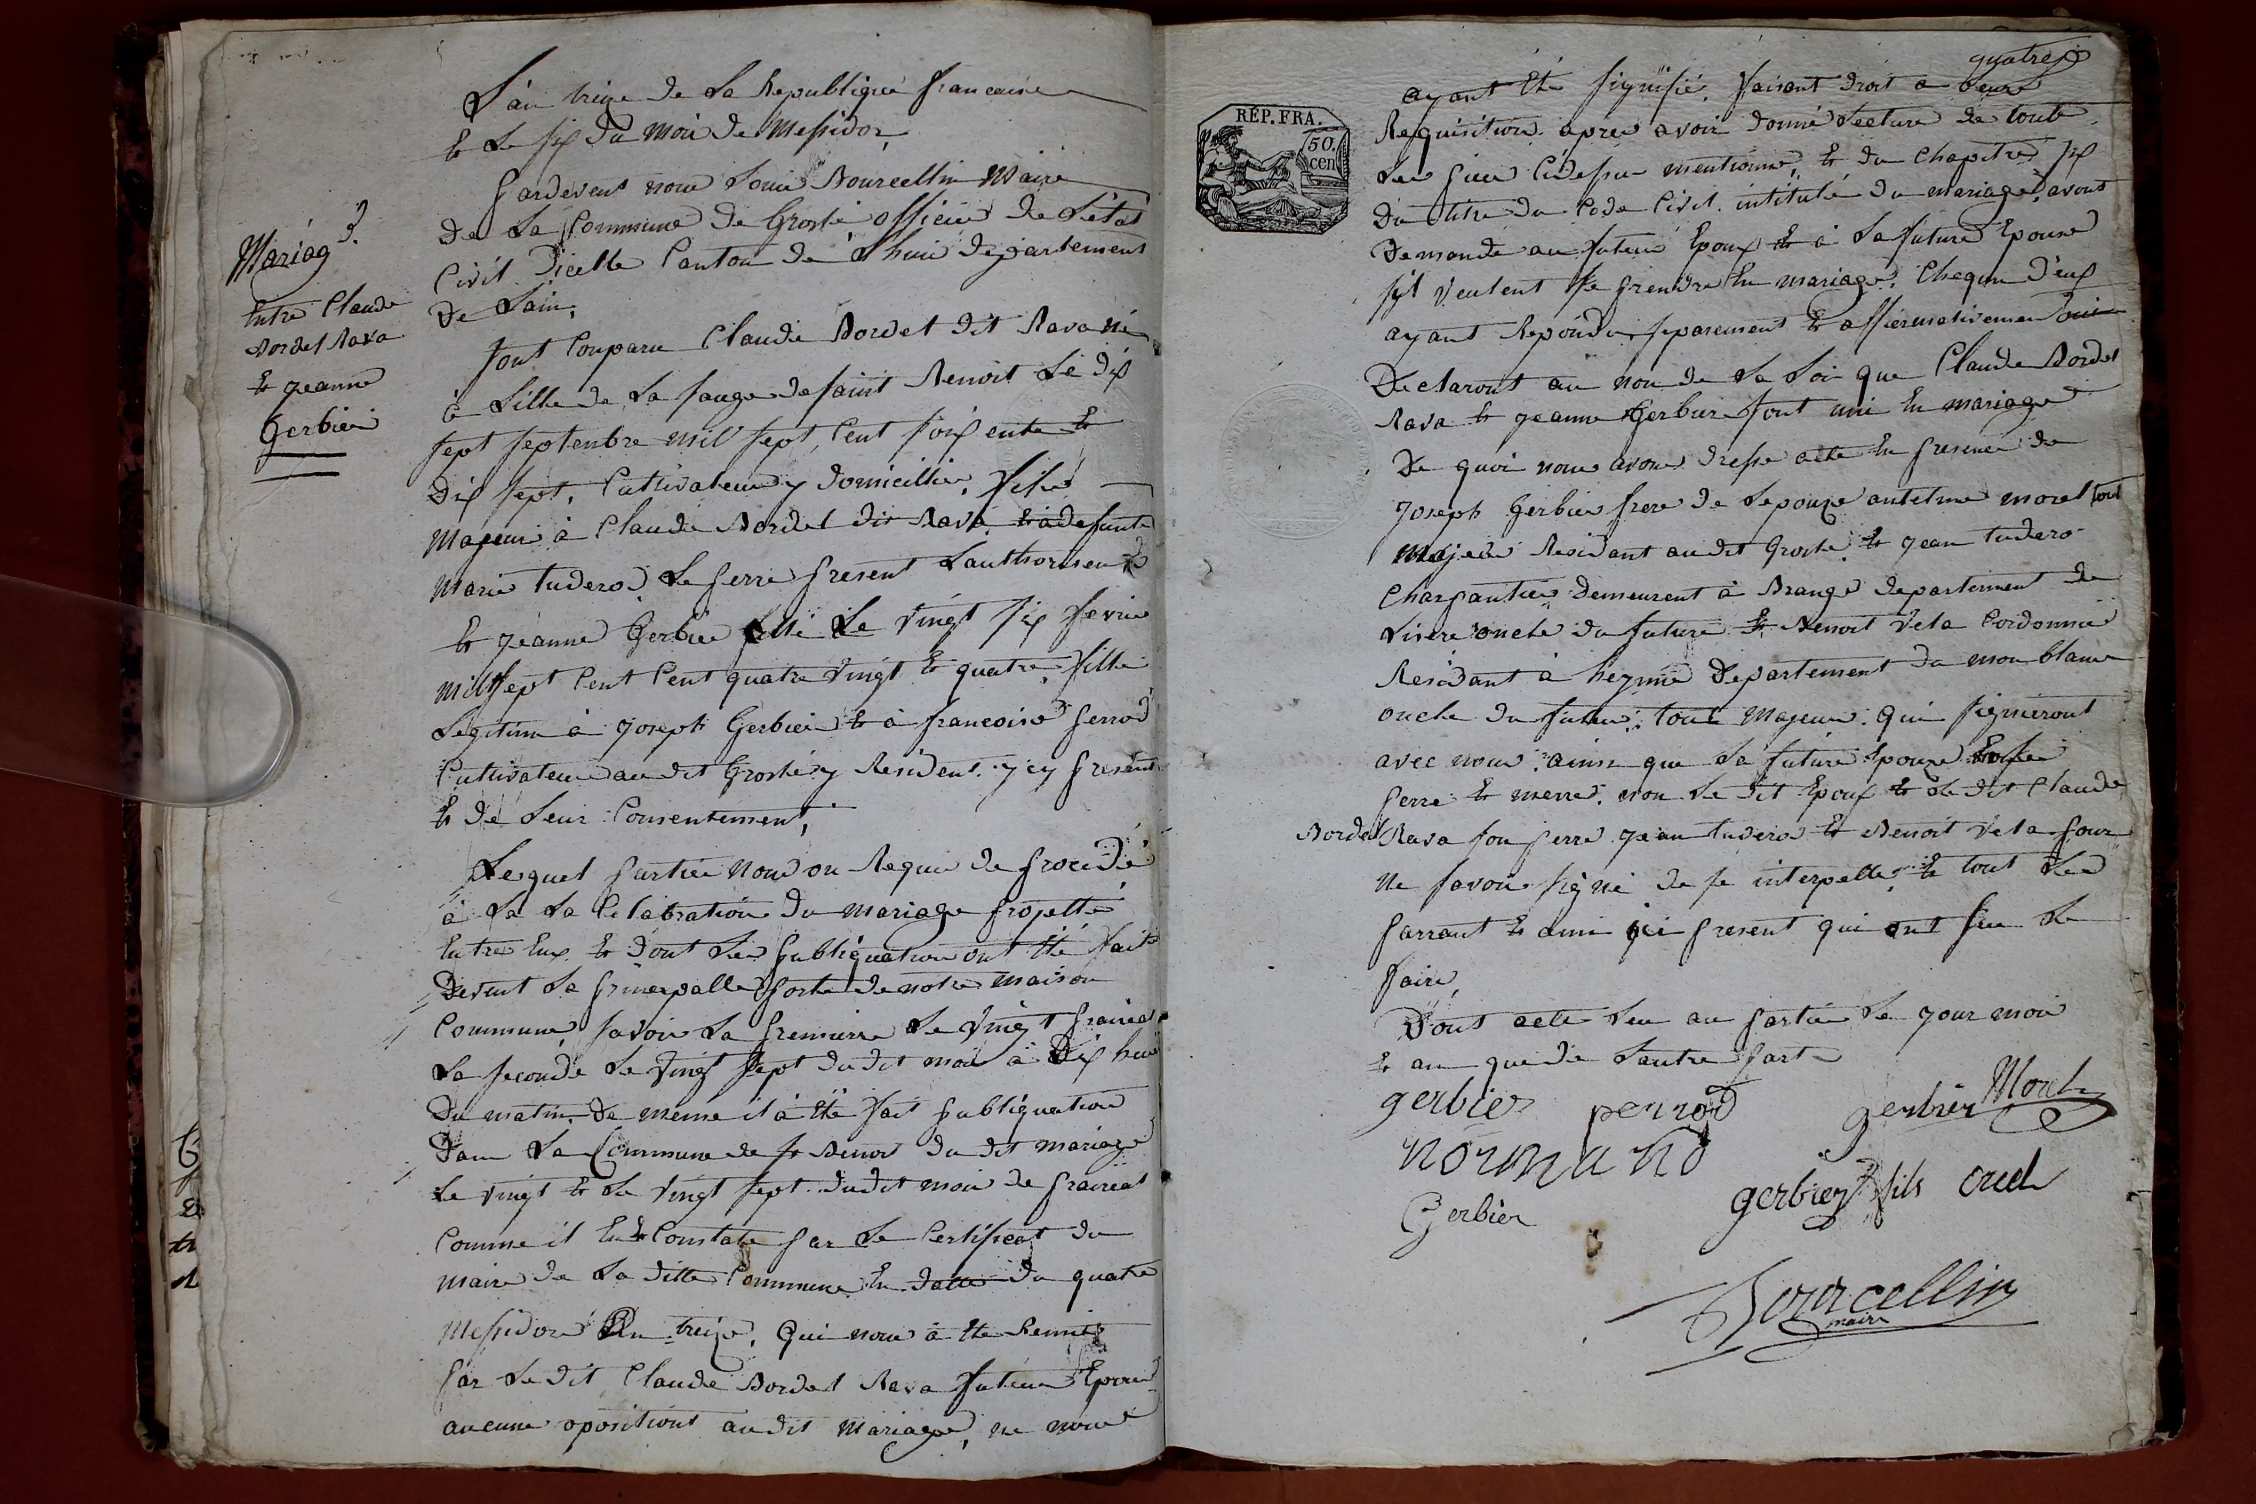 L'an treize de la Republique francaise
et le six du mois de messidor
pardevent nous Louis Bourcellin maire
de la Commune de Groslé officier de l'état
Civil d'icelle Canton de Lhuis departement
de Lain,
3.
Mariag
Entre Claude
Bordel Rava
et jeanne
Gerbier
sont Comparu Claude Bordel dit Rava né
à Lille de la sauge de saint Benoit le dix
sept septenbre mil sept Cent soix ente et
dix sept, Cultivateur y domicillier, fils
majeur à Claude Bordel dit Rava, et à defunte
marie tudero, le perre present L'authorisent
et jeanne Gerbier née Le Vingt six fevrier
mil sept Cent Cent quatre Vingt et quatre, fille
Legitime à joseph Gerbier et à francoise perrod
Cultivateur au dit Groslé y Résident, y cy present
et de Leur Consentement,
Lesquel partie nous on Requi de procedé
à La La Celabration du mariage projetté
Entre Eux et dont les publiquation ont été fait
devent la prinsipalle porte de notre maison
Commune, savoir la premierre le vingt prairial
la seconde le Vingt sept dudit mois à dix heur
du matin. de même il à été fait publiquation
dans La Commune de st Benoit du dit mariage
le vingt et le vingt sept dudit mois de prairial
Comme il Est Constaté par le Certificat du
maire de la ditte Commune En datte du quatre
messidor An treize, qui nous à été Remits
par le dit Claude Bordel Rava futeur Epoux
aucune opositions au dit mariage, ne nous
quatre
RÉP. FRA.
50.
cen
ayant été signifié, faisant droit a leurs
Requisition apres avoir donné Lecture de toute
les piece Cidessus mentionné, et du Chapitre six
du titre du Code Civil intitulé du mariage, avons
demandé au futeur Epoux et à la future Epouse
s'il veulent se prendre En mariage, Chequn d'eux
ayant Repondu separement et affiermativement oui
declarons au nom de la Loi que Claude Bordel
Rava et jeanne Gerbier sont uni En mariage
de quoi nous avons dresse acte En presence de
joseph Gerbier frere de Lepouze antelme morel tout
majeur Residant audit Groslé et jean tudero
Charpantier demeurent à Brange departement de
Lisere oncle du future et Benoit Vela Cordonnié
Residant à heyrine departement du mon blanc
oncle du futeur, tous majeur, qui signeront
avec nous, ainsi que la future Epouze
perre et merre, non le dit Epoux et le dit Claude
Bordel Rava son perre jean tudero et Benoit Vela pour
ne savoir signé de se interpellé et tout les
parrant et amis ici present qui ont seu le
faire,
Dont acte leu au partie le jour mois
et an que de L'autre part
gerbier perrod gerbier Morel
normand
Gerbier gerbier fils cred
Bourcellin
maire